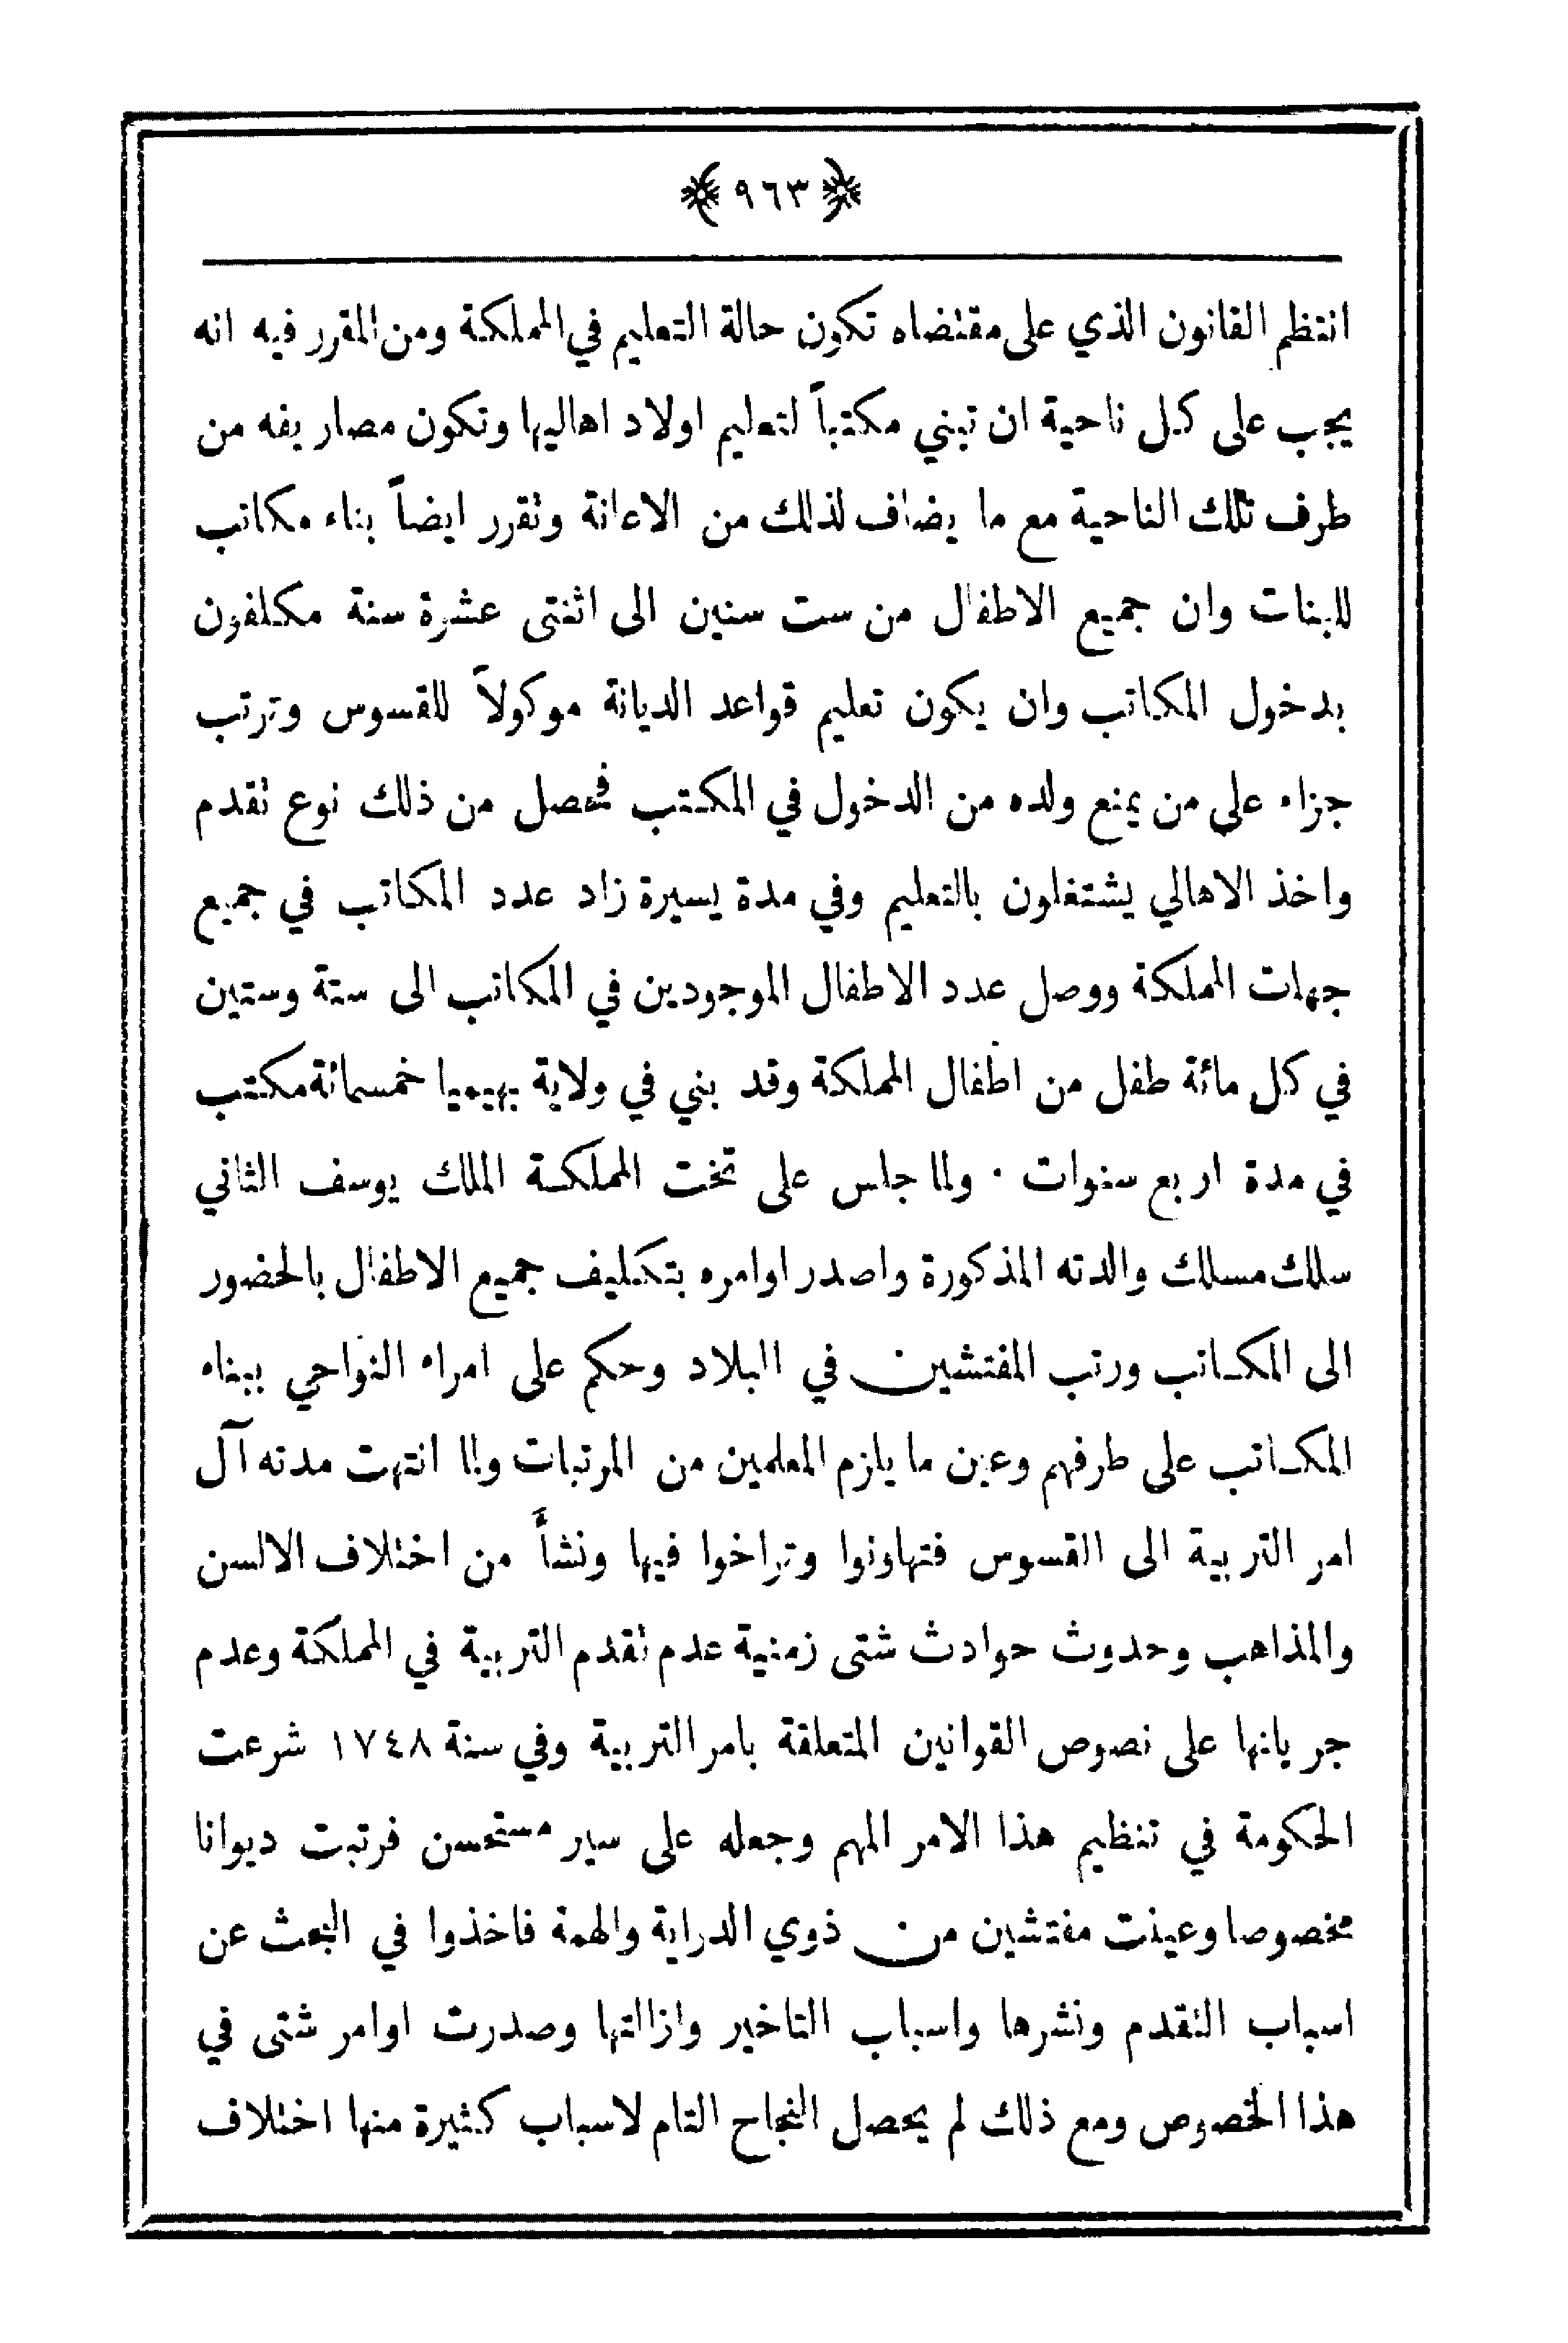 ﴿ ٩٦٣ ﴾
انتظم القانون الذي على مقتضاه تكون حالة التعليم في المملكة ومن المقرر فيه انه
يجب على كل ناحية ان تبني مكتباً لتعليم اولاد اهاليها وتكون مصاريفه من
طرف تلك الناحية مع ما يضاف لذلك من الاعانة وتقرر ايضاً بناء مكاتب
للبنات وان جميع الاطفال من ست سنين الى اثنتى عشرة سنة مكلفون
بدخول المكاتب وان يكون تعليم قواعد الديانة موكولاً للقسوس وترتب
جزاء على من يمنع ولده من الدخول في المكتب فحصل من ذلك نوع تقدم
واخذ الاهالي يشتغلون بالتعليم وفي مدة يسيرة زاد عدد المكاتب في جميع
جهات المملكة ووصل عدد الاطفال الموجودين في المكاتب الى ستة وستين
في كل مائة طفل من اطفال المملكة وقد بني في ولاية بهيميا خمسمائة مكتب
في مدة اربع سنوات ٠ ولما جلس على تخت المملكة الملك يوسف الثاني
سلك مسلك والدته المذكورة واصدر اوامره بتكليف جميع الاطفال بالحضور
الى المكاتب ورتب المفتشين في البلاد وحكم على امراء النواحي ببناء
المكاتب على طرفهم وعين ما يلزم المعلمين من المرتبات ولما انتهت مدته آل
امر التربية الى القسوس فتهاونوا وتراخوا فيها ونشأ من اختلاف الالسن
والمذاهب وحدوث حوادث شتى زمنية عدم تقدم التربية في المملكة وعدم
جريانها على نصوص القوانين المتعلقة بامر التربية وفي سنة ١٧٤٨ شرعت
الحكومة في تنظيم هذا الامر المهم وجعله على سير مستحسن فرتبت ديوانا
مخصوصا وعينت مفتشين من ذوي الدراية والهمة فاخذوا في البحث عن
اسباب التقدم ونشرها واسباب التاخير وازالتها وصدرت اوامر شتى في
هذا الخصوص ومع ذلك لم يحصل النجاح التام لاسباب كثيرة منها اختلاف